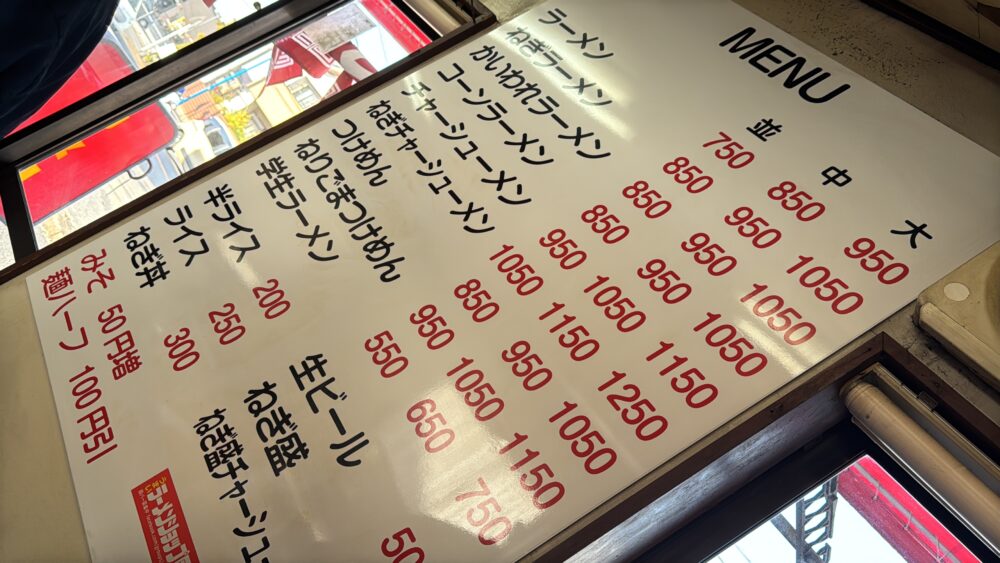 MENU
並 中 大
ラーメン 750 850 950
ねぎラーメン 850 950 1050
かいわれラーメン 850 950 1050
コーンラーメン 850 950 1050
チャーシューメン 950 1050 1150
ねぎチャーシューメン 1050 1150 1250
つけめん 850 950 1050
ねりごまつけめん 950 1050 1150
学生ラーメン 550 650 750
半ライス 200
ライス 250
ねぎ丼 300
みそ 50円増
麺ハーフ 100円引
生ビール 50
ねぎ盛
ねぎ盛チャーシュ
うまい
ラーメンショップ